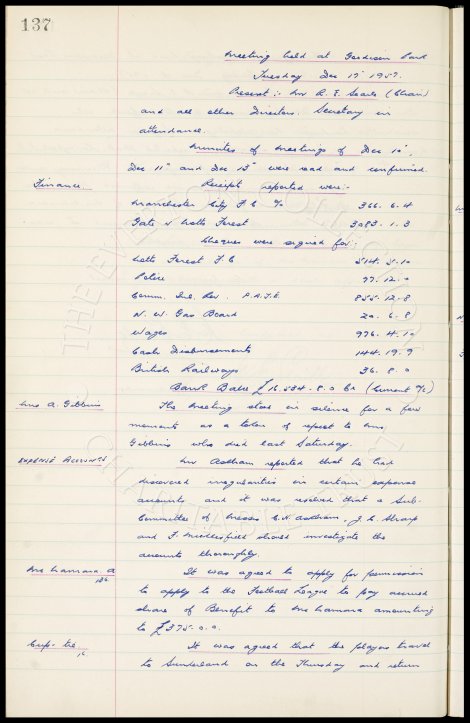 137
Meeting held at Goodison Park
Tuesday Dec 17th 1957.
Present :- Mr R. E. Searle (Chair)
and all other Directors. Secretary in
attendance.
Minutes of meetings of Dec 10th,
Dec 11th and Dec 13th were read and confirmed.
Finance
Receipts reported were:-
Manchester City F C % 366. 6. 4
Gate v Notts Forest 3083. 1. 3
Cheques were signed for:
Notts Forest F. C 514. 5. 10
Police 77. 12. 0
Comm. Inl. Rev. P.A.Y.E. 855. 12. 8
N. W. Gas Board 20. 6. 8
Wages 976. 4. 10
Cash Disbursements 144. 19. 9
British Railways 36. 8. 0
Bank Balce £16.534. 8. 0 Cr (Current a/c)
Mrs A. Gibbins
The Meeting stood in silence for a few
moments as a token of respect to Mrs
Gibbins who died last Saturday.
EXPENSE ACCOUNTS
Mr Askham reported that he had
discovered irregularities in certain expense
accounts and it was resolved that a Sub-
Committee of Messrs C. H. Askham, J. C. Sharp
and F. Micklesfield should investigate the
accounts thoroughly.
McNamara. A
It was agreed to apply for permission
to apply to the Football League to pay accrued
share of Benefit to McNamara amounting
to £375-0-0.
Cup-tie
It was agreed that the players travel
to Sunderland on the Thursday and return
THE EVERTON COLLECTION
CHARITABLE TRUST